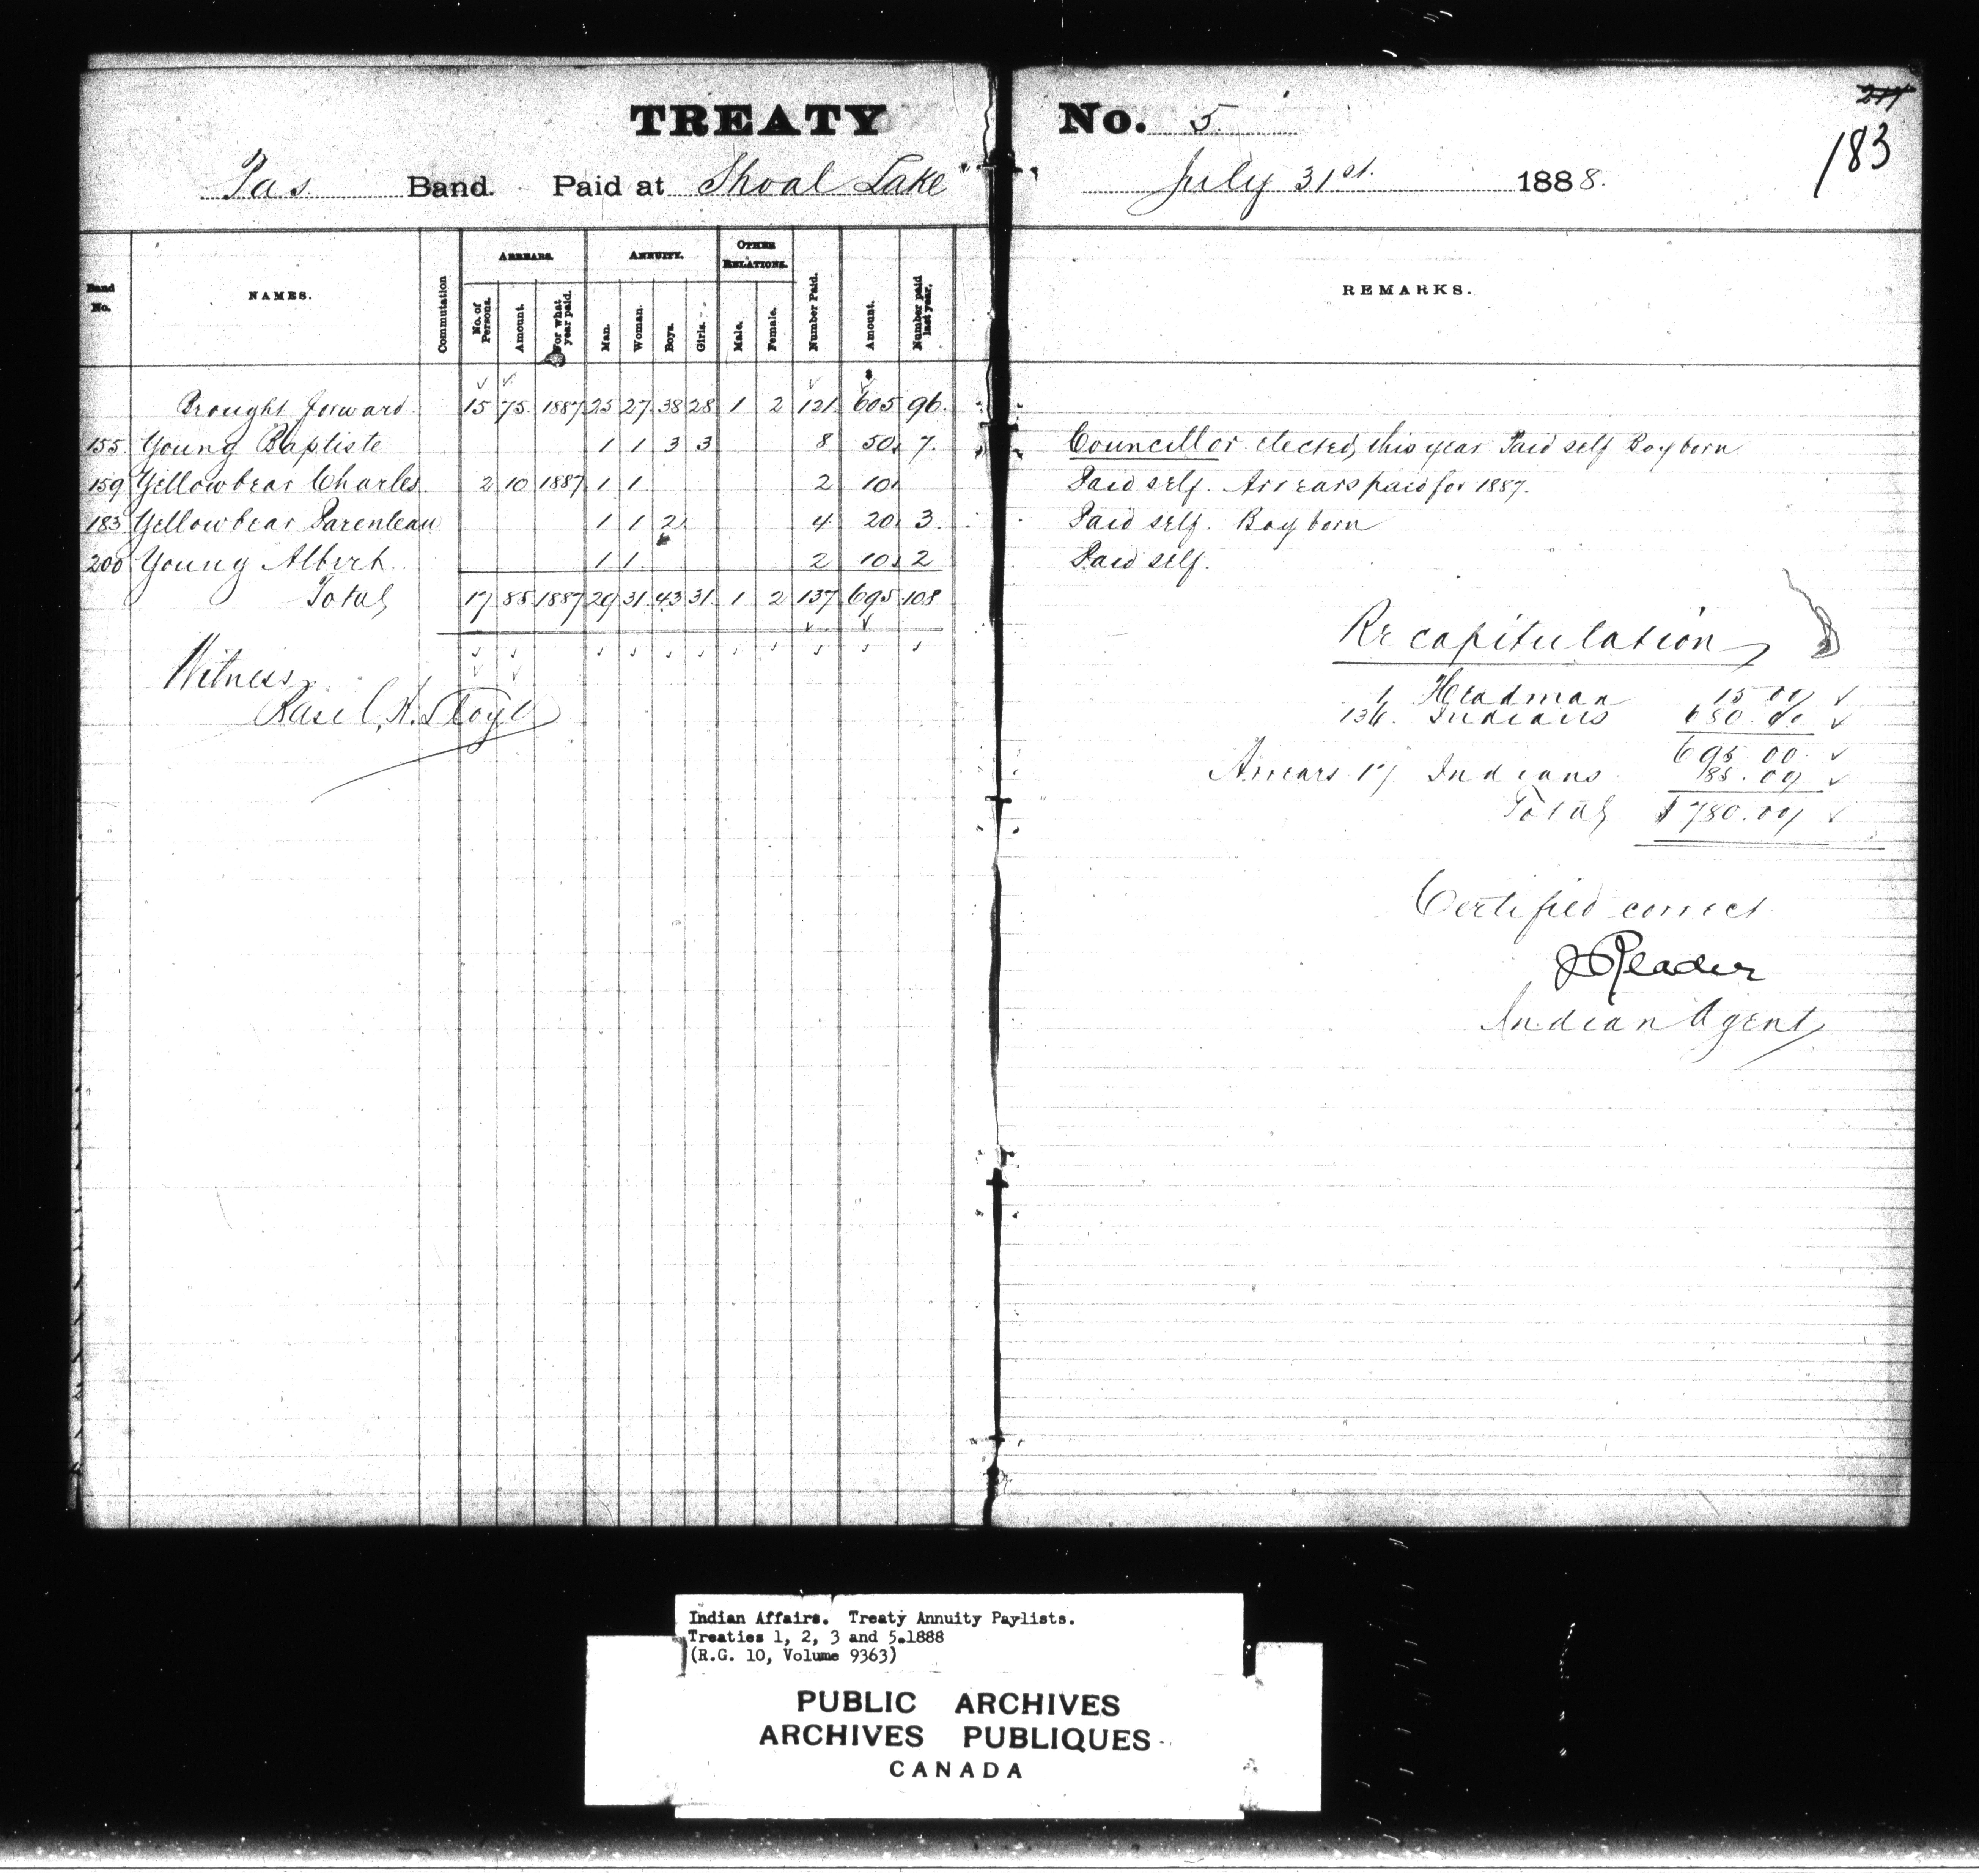 TREATY No. 5
211
183
Pas Band. Paid at Shoal Lake July 31st. 1888.
Band No. NAMES. Commutation ARREARS. No. of Persons. Amount. For what year paid. ANNUITY. Man. Woman. Boys. Girls. OTHER RELATIONS. Male. Female. Number Paid. Amount. Number paid last year. REMARKS.
Brought forward. 15 75. 1887 25 27. 38 28 1 2 121. 605 96.
155. Young Baptiste 1 1 3 3 8 50. 7. Councillor elected this year Paid self Boy born
159 Yellowbear Charles. 2 10 1887 1 1. 2 10. Paid self. Arrears paid for 1887.
183 Yellowbear Parenteau 1 1 2. 4 20. 3. Paid self. Boy born
200 Young Albert. 1 1. 2 10. 2 Paid self.
Total 17 85 1887 29 31. 43 31. 1 2 137 695 108
Recapitulation
1 Headman 15.00
136. Indians 680.00
695.00
Arrears 17 Indians 85.00
Total $780.00
Witness
Certified correct
J Reader
Indian Agent
Indian Affairs. Treaty Annuity Paylists.
Treaties 1, 2, 3 and 5.1888
(R.G. 10, Volume 9363)
PUBLIC ARCHIVES
ARCHIVES PUBLIQUES
CANADA